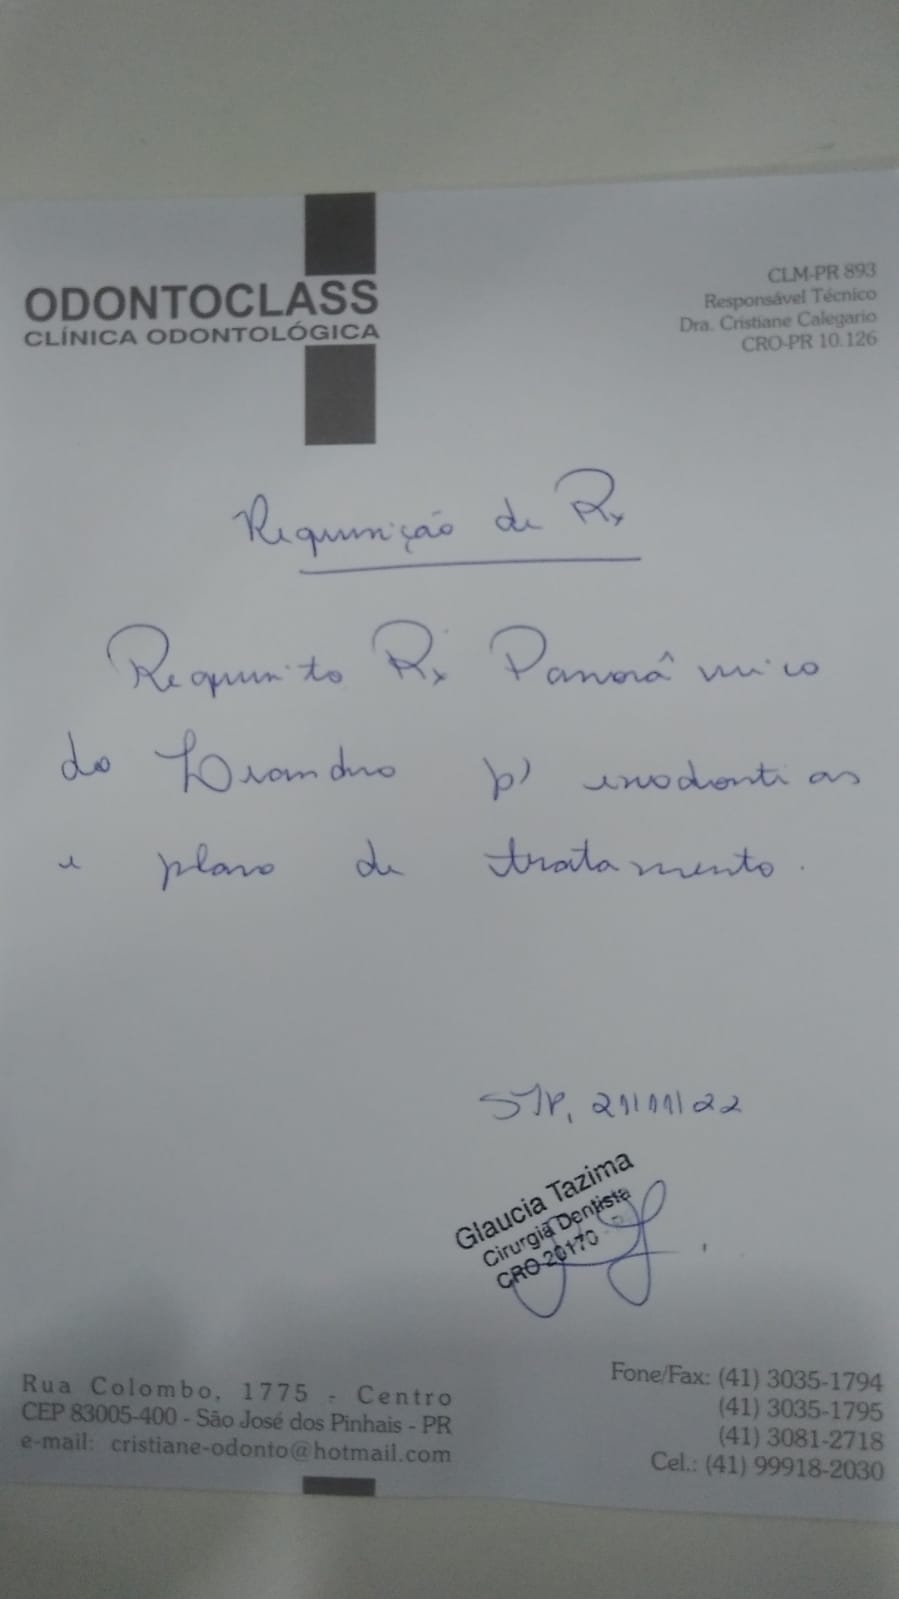 ODONTOCLASS
CLÍNICA ODONTOLÓGICA
CLM-PR 893
Responsável Técnico
Dra. Cristiane Calegario
CRO-PR 10.126
Requisição de Rx
Requisito Rx Panorâmico
do Leandro p/ exodontias
e plano de tratamento.
SJP, 21/11/22
Glaucia Tazima
Cirurgiã Dentista
CRO 20170
Rua Colombo, 1775 - Centro
CEP 83005-400 - São José dos Pinhais - PR
e-mail: cristiane-odonto@hotmail.com
Fone/Fax: (41) 3035-1794
(41) 3035-1795
(41) 3081-2718
Cel.: (41) 99918-2030